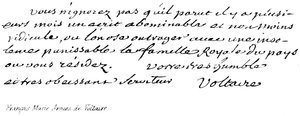 vous n'ignorez pas qu'il parut il y a plusieurs
mois un ecrit abominable et non moins
ridicule, ou l'on ose outrager avec une inso-
lence punissable la famille Royale du pays
ou vous résidez. votre tres humble
et tres obeissant serviteur Voltaire
François Marie Arouet de Voltaire.